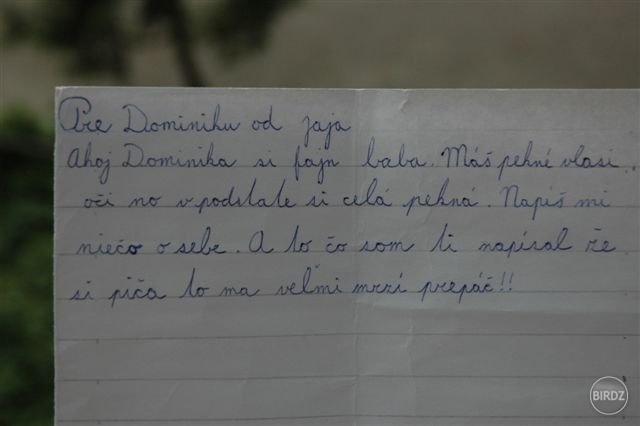 Pre Dominiku od jaja
Ahoj Dominika si fajn baba. Máš pekné vlasi
oči no v podstate si celá pekná. Napíš mi
niečo o sebe. A to čo som ti napísal že
si piča to ma veľmi mrzí prepáč!!
BIRDZ